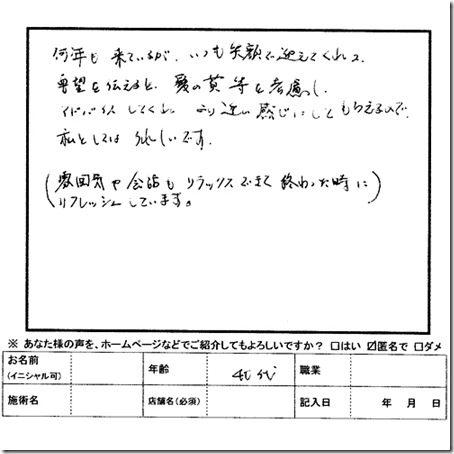 何年も来ているが、いつも笑顔で迎えてくれて
要望を伝えると、髪の質等を考慮し、
アドバイスしてくれ より近い感じにしてもらえるので、
私としては うれしいです。
(雰囲気や会話もリラックスできて 終わった時に
リフレッシュしています。)
※ あなた様の声を、ホームページなどでご紹介してもよろしいですか？ □はい ☑匿名で □ダメ
お名前 (イニシャル可) 年齢 40代 職業
施術名 店舗名(必須) 記入日 年 月 日